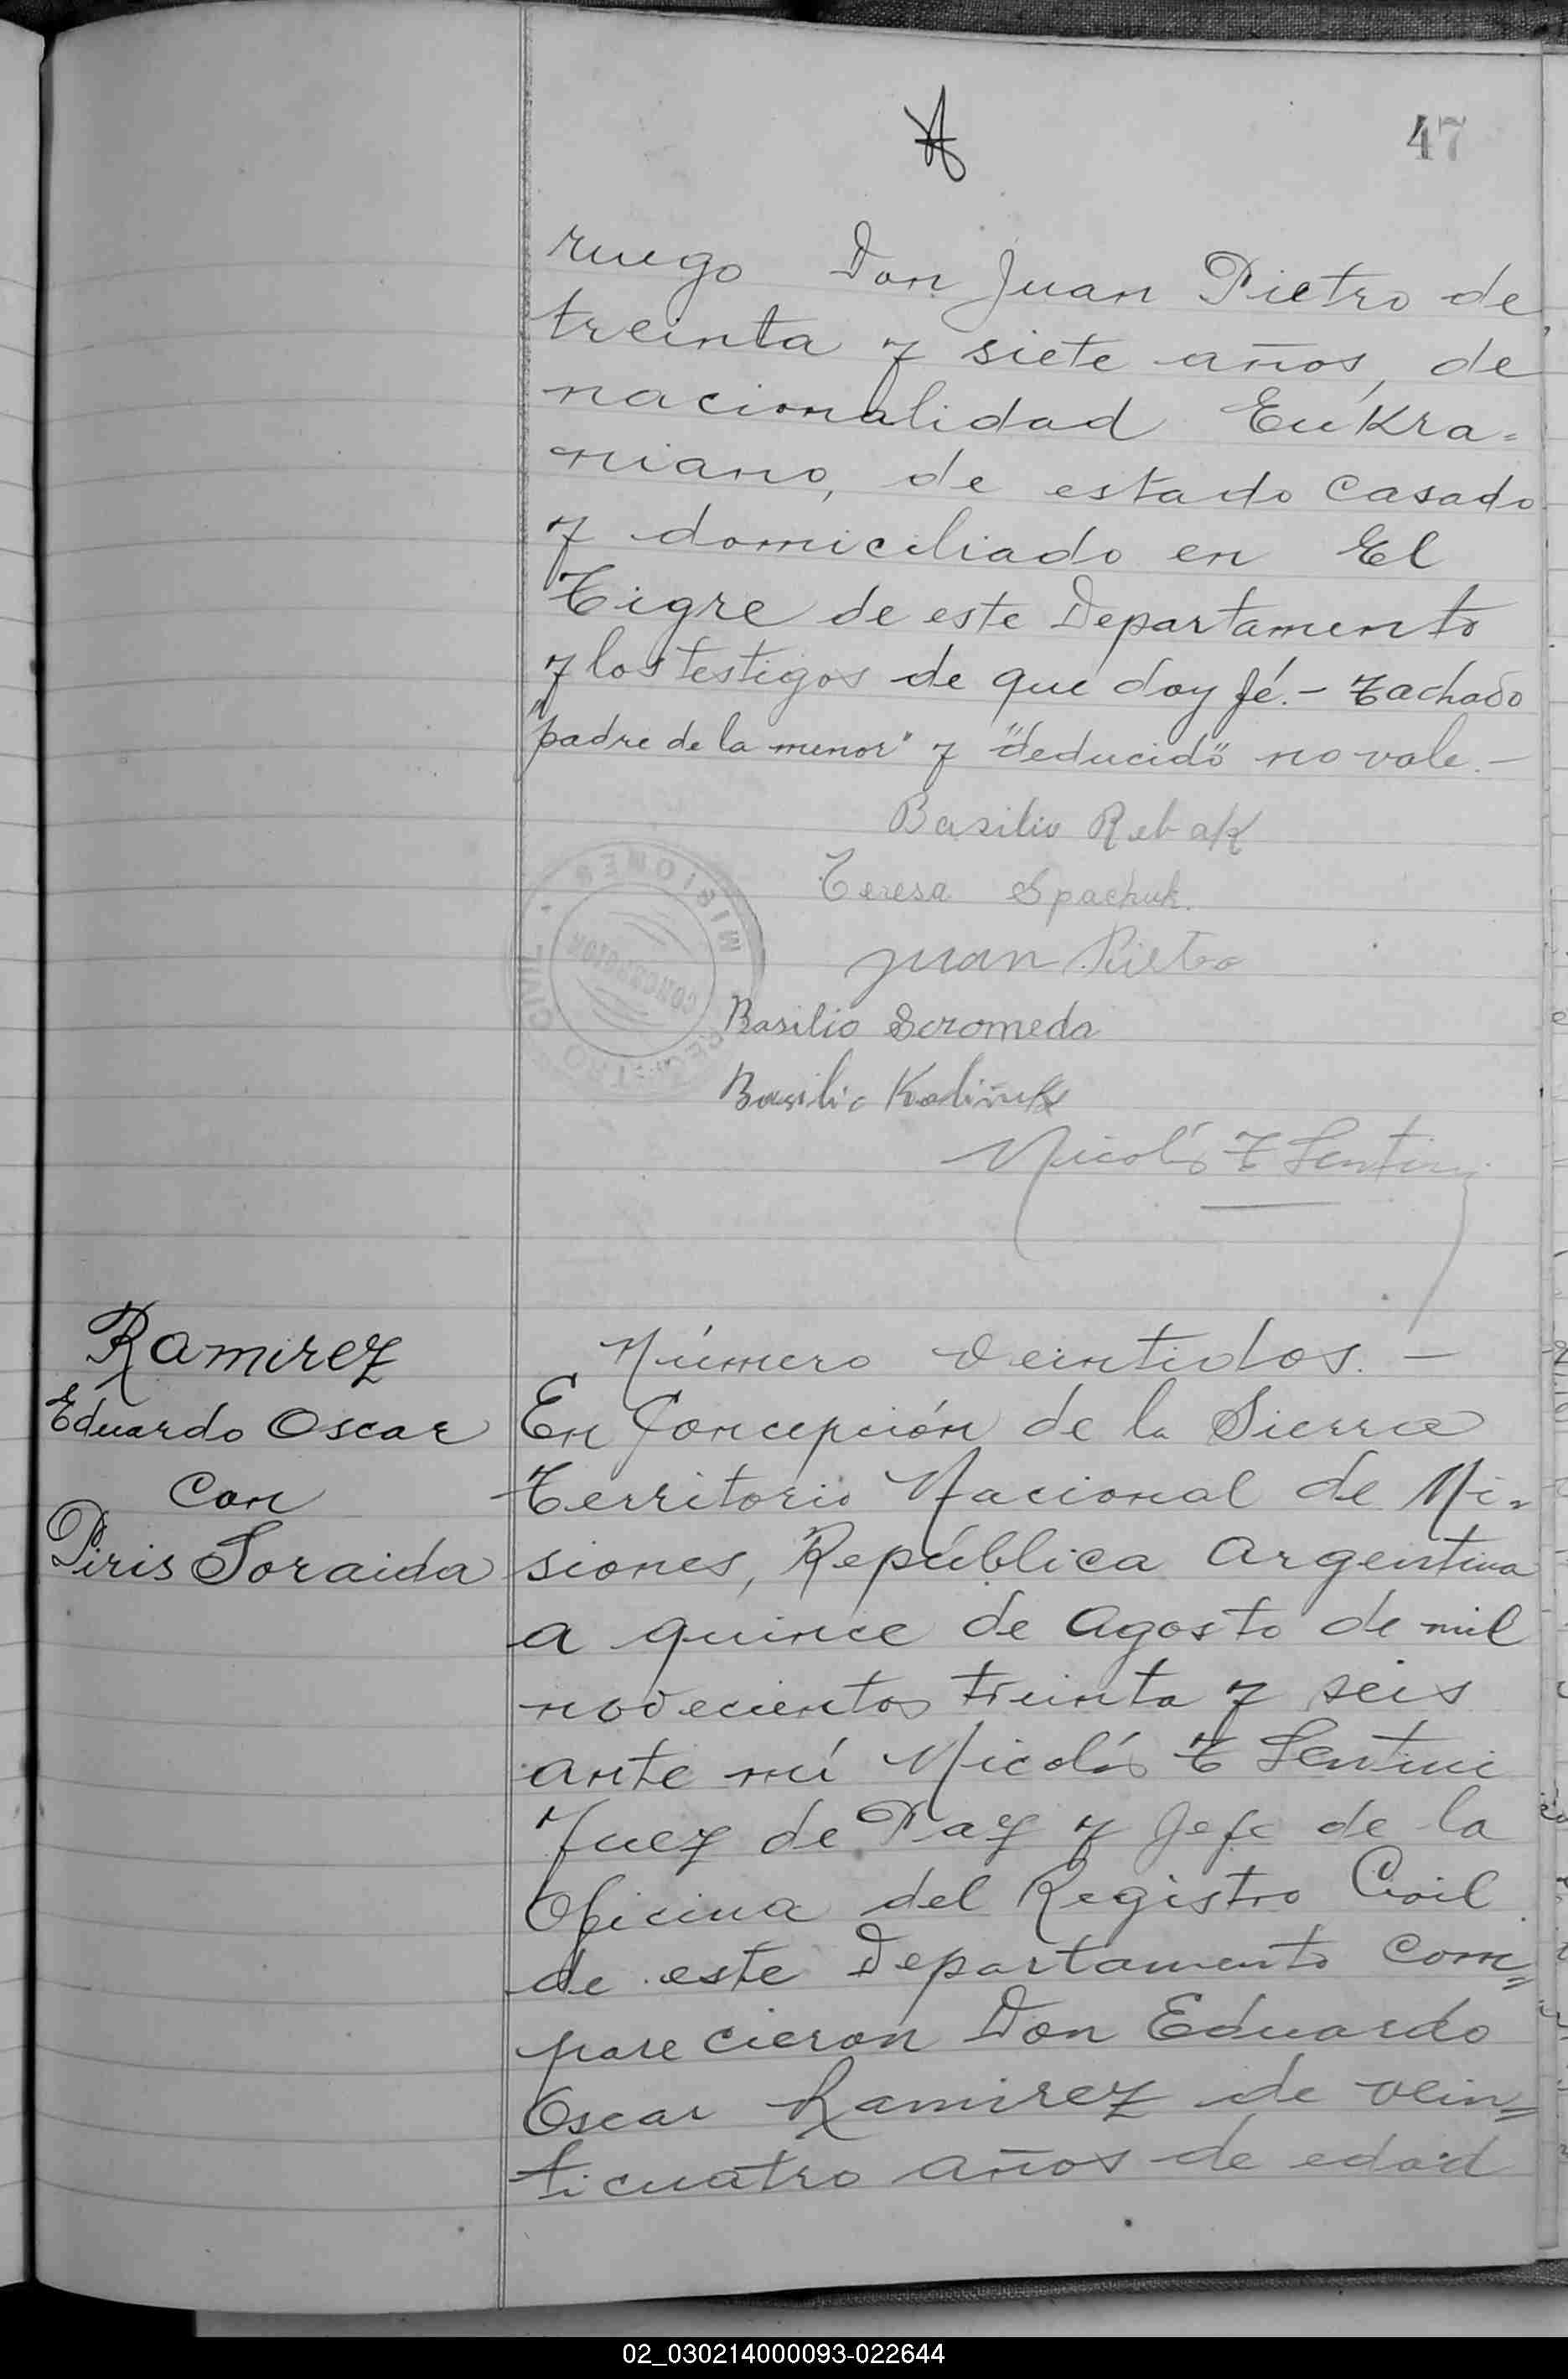 47
ruego Don Juan Pietro de
treinta y siete años, de
nacionalidad Eukra=
niano, de estado casado
y domiciliado en El
Tigre de este Departamento
y los testigos de que doy fé.- Tachado
"padre de la menor" y "deducido" no vale.-
Basilio Rebak
Teresa Spachuk.
Juan Pietro
Basilio Scromeda
Basilio
Nicolás T Sentini
MISIONES
CONCEPCION
REGISTRO CIVIL
Ramirez
Eduardo Oscar
con
Piris Soraida
Número veintidos.-
En Concepción de la Sierra
Territorio Nacional de Mi=
siones, República Argentina
a quince de Agosto de mil
novecientos treinta y seis
ante mí Nicolás T Sentini
Juez de Paz y Jefe de la
Oficina del Registro Civil
de este Departamento com=
parecieron Don Eduardo
Oscar Ramirez de vein=
ticuatro años de edad
02_030214000093-022644